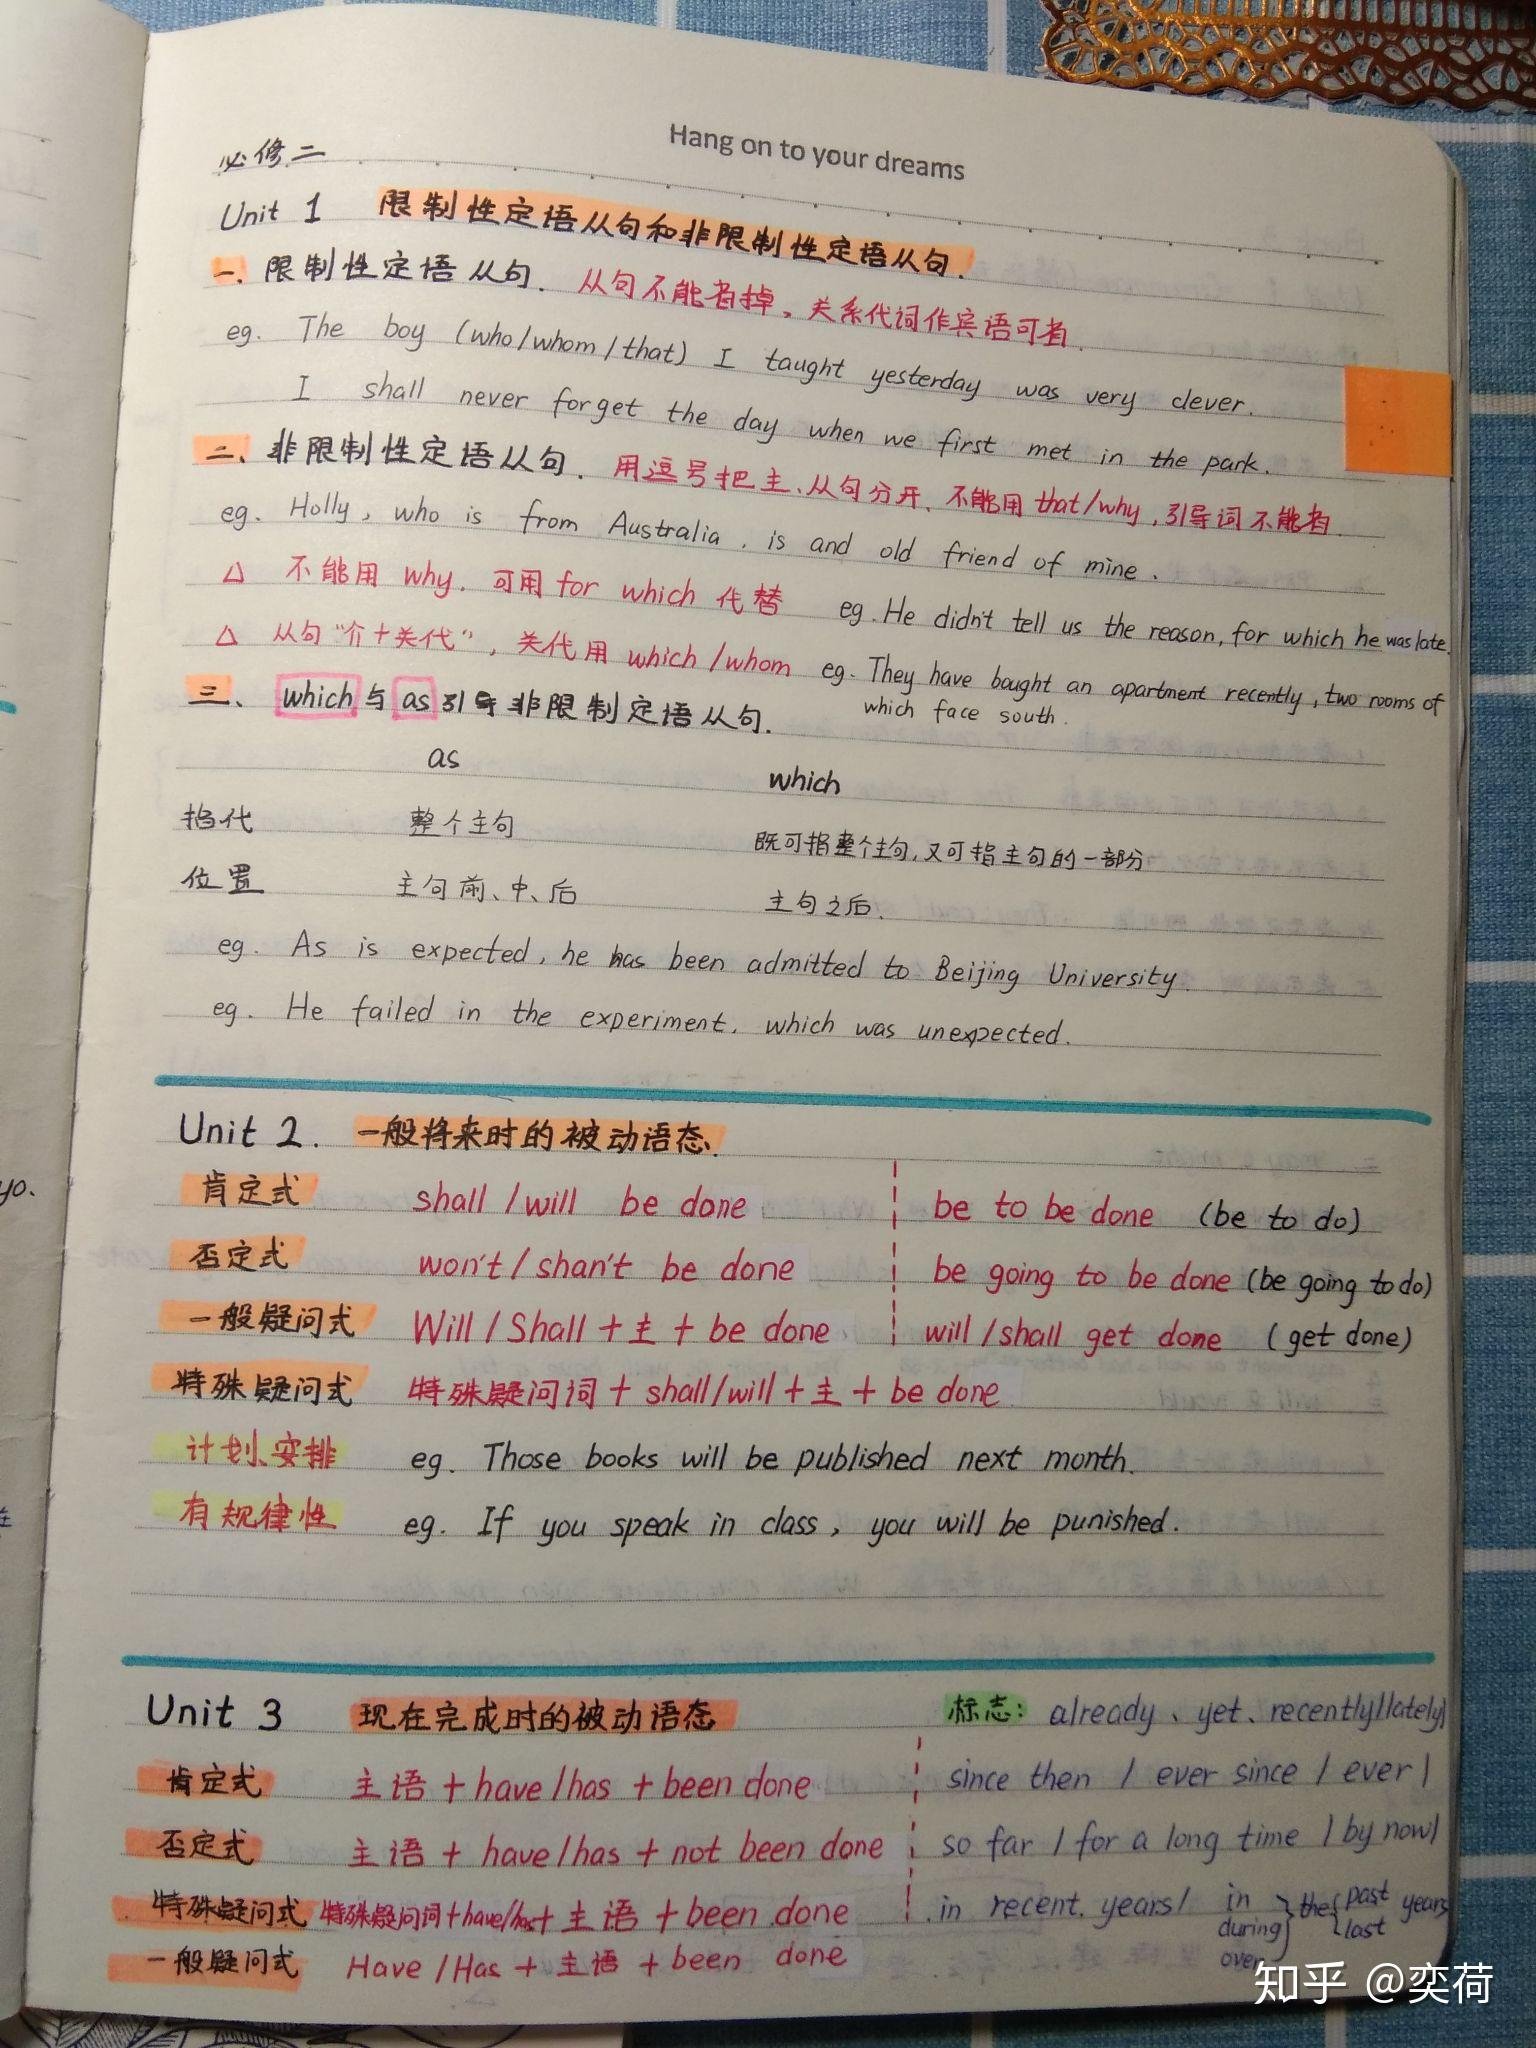 Hang on to your dreams
必修二
Unit 1 限制性定语从句和非限制性定语从句.
一. 限制性定语从句. 从句不能省掉,关系代词作宾语可省.
eg. The boy (who/whom/that) I taught yesterday was very clever.
I shall never forget the day when we first met in the park.
二、非限制性定语从句. 用逗号把主、从句分开、不能用 that/why, 引导词不能省.
eg. Holly, who is from Australia, is and old friend of mine.
△ 不能用 why. 可用 for which 代替 eg. He didn't tell us the reason, for which he was late.
△ 从句“介+关代”, 关代用 which/whom eg. They have bought an apartment recently, two rooms of
which face south.
三、which 与 as 引导非限制定语从句.
as which
指代 整个主句 既可指整个主句,又可指主句的一部分
位置 主句前、中、后 主句之后.
eg. As is expected, he has been admitted to Beijing University.
eg. He failed in the experiment, which was unexpected.
Unit 2. 一般将来时的被动语态.
肯定式 shall/will be done be to be done (be to do)
否定式 won't/shan't be done be going to be done (be going to do)
一般疑问式 Will/Shall+主+be done will/shall get done (get done)
特殊疑问式 特殊疑问词+shall/will+主+be done
计划、安排 eg. Those books will be published next month.
有规律性 eg. If you speak in class, you will be punished.
Unit 3 现在完成时的被动语态 标志: already、yet、recently/lately/
肯定式 主语+have/has+been done since then / ever since / ever /
否定式 主语+have/has+not been done so far / for a long time / by now/
特殊疑问式 特殊疑问词+have/has+主语+been done in recent years/ in during over } the { past last years
一般疑问式 Have/Has+主语+been done
yo.
知乎 @奕荷